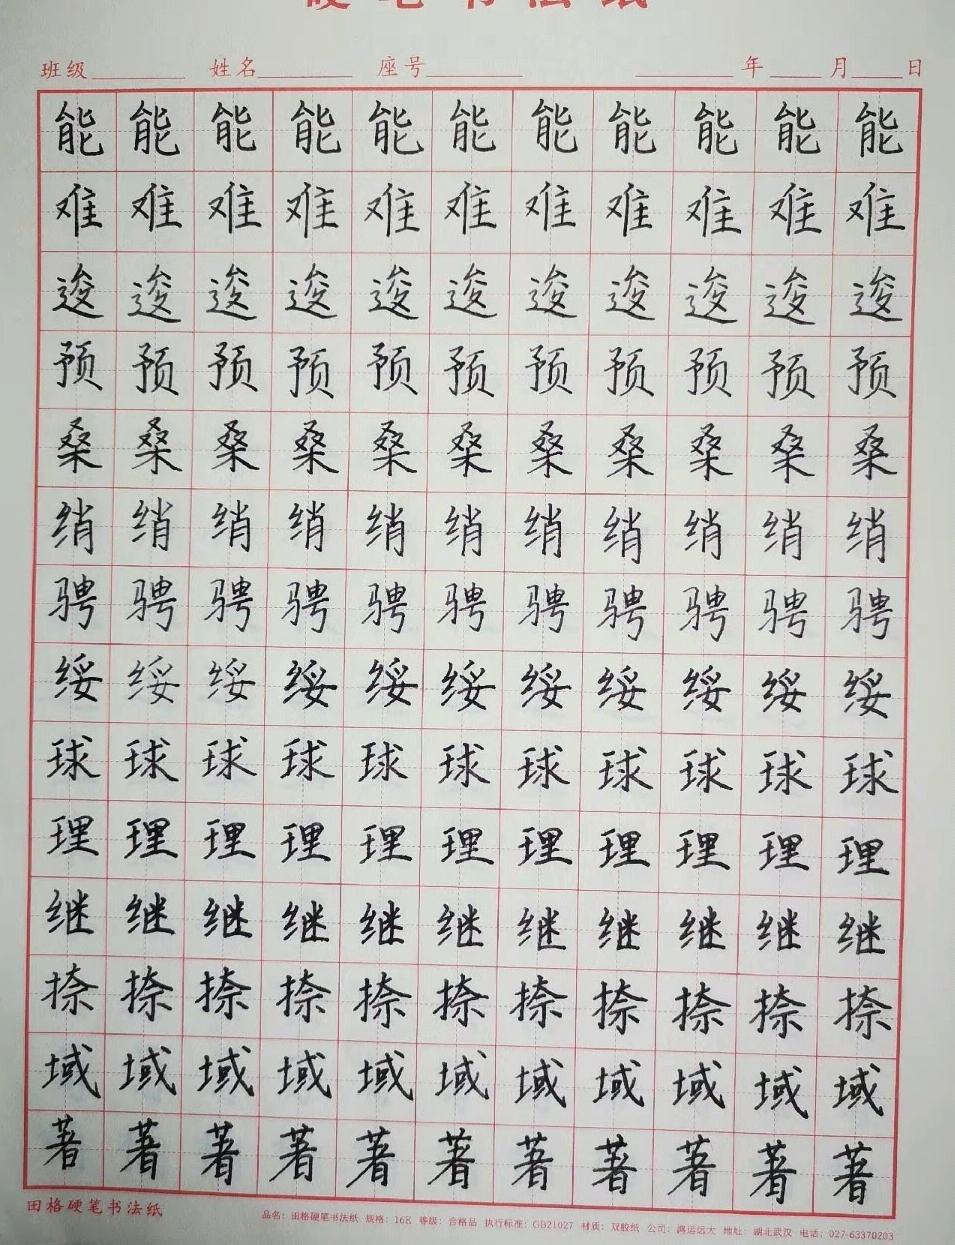 硬笔书法纸
班级 姓名 座号 年 月 日
能 能 能 能 能 能 能 能 能 能 能
难 难 难 难 难 难 难 难 难 难 难
逡 逡 逡 逡 逡 逡 逡 逡 逡 逡 逡
预 预 预 预 预 预 预 预 预 预 预
桑 桑 桑 桑 桑 桑 桑 桑 桑 桑 桑
绡 绡 绡 绡 绡 绡 绡 绡 绡 绡 绡
骋 骋 骋 骋 骋 骋 骋 骋 骋 骋 骋
绥 绥 绥 绥 绥 绥 绥 绥 绥 绥 绥
球 球 球 球 球 球 球 球 球 球 球
理 理 理 理 理 理 理 理 理 理 理
继 继 继 继 继 继 继 继 继 继 继
捺 捺 捺 捺 捺 捺 捺 捺 捺 捺 捺
域 域 域 域 域 域 域 域 域 域 域
著 著 著 著 著 著 著 著 著 著 著
田格硬笔书法纸
品名：田格硬笔书法纸 规格：16K 等级：合格品 执行标准：GB21027 材质：双胶纸 公司：鸿运远大 地址：湖北武汉 电话：027-63370203